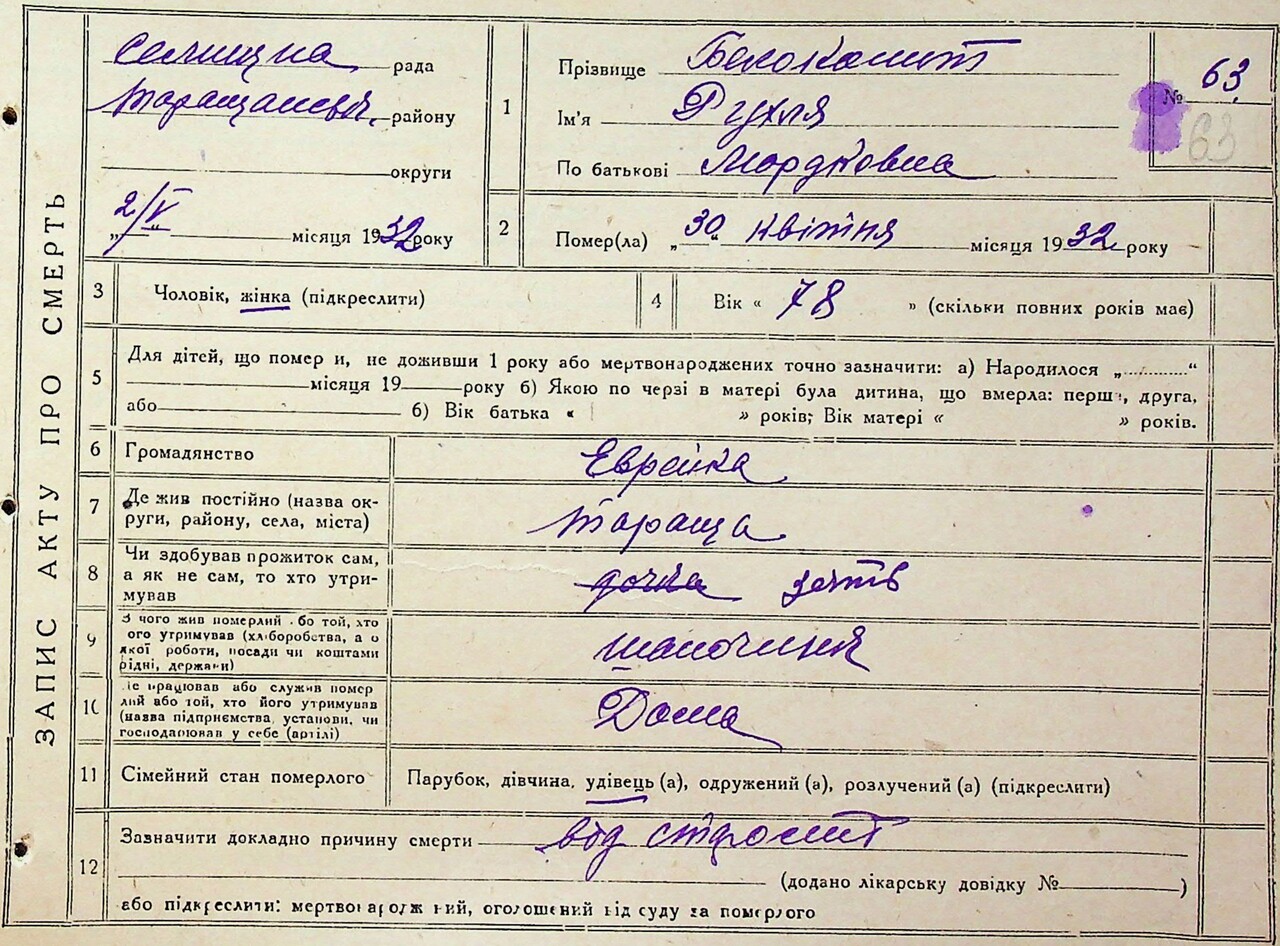 ЗАПИС АКТУ ПРО СМЕРТЬ
селищна рада
Таращанськ. району
округи
„2/V“ місяця 1932 року
1
Прізвище Белокопит
Ім'я Рухля
По батькові Мордковна
№ 63
63
2
Помер(ла) „30“ квітня місяця 1932 року
3
Чоловік, жінка (підкреслити)
4
Вік « 78 » (скільки повних років має)
5
Для дітей, що помер и, не доживши 1 року або мертвонароджених точно зазначити: а) Народилося „..........“
місяця 19 року б) Якою по черзі в матері була дитина, що вмерла: перш , друга,
або б) Вік батька « » років; Вік матері « » років.
6
Громадянство Еврейка
7
Де жив постійно (назва ок-
руги, району, села, міста)
Тараща
8
Чи здобував прожиток сам,
а як не сам, то хто утри-
мував
дочка зять
9
З чого жив померлий бо той, хто
ого утримував (хліборобства, а о
якої роботи, посади чи коштами
рідні, держави)
10
де працював або служив помер
лий або той, хто його утримував
(назва підприємства, установи, чи
господарював у себе (артілі)
Дома
11
Сімейний стан померлого
Парубок, дівчина, удівець (а), одружений (а), розлучений (а) (підкреслити)
12
Зазначити докладно причину смерти від
(додано лікарську довідку № )
або підкреслити: мертвонародж ний, оголошений від суду за померлого